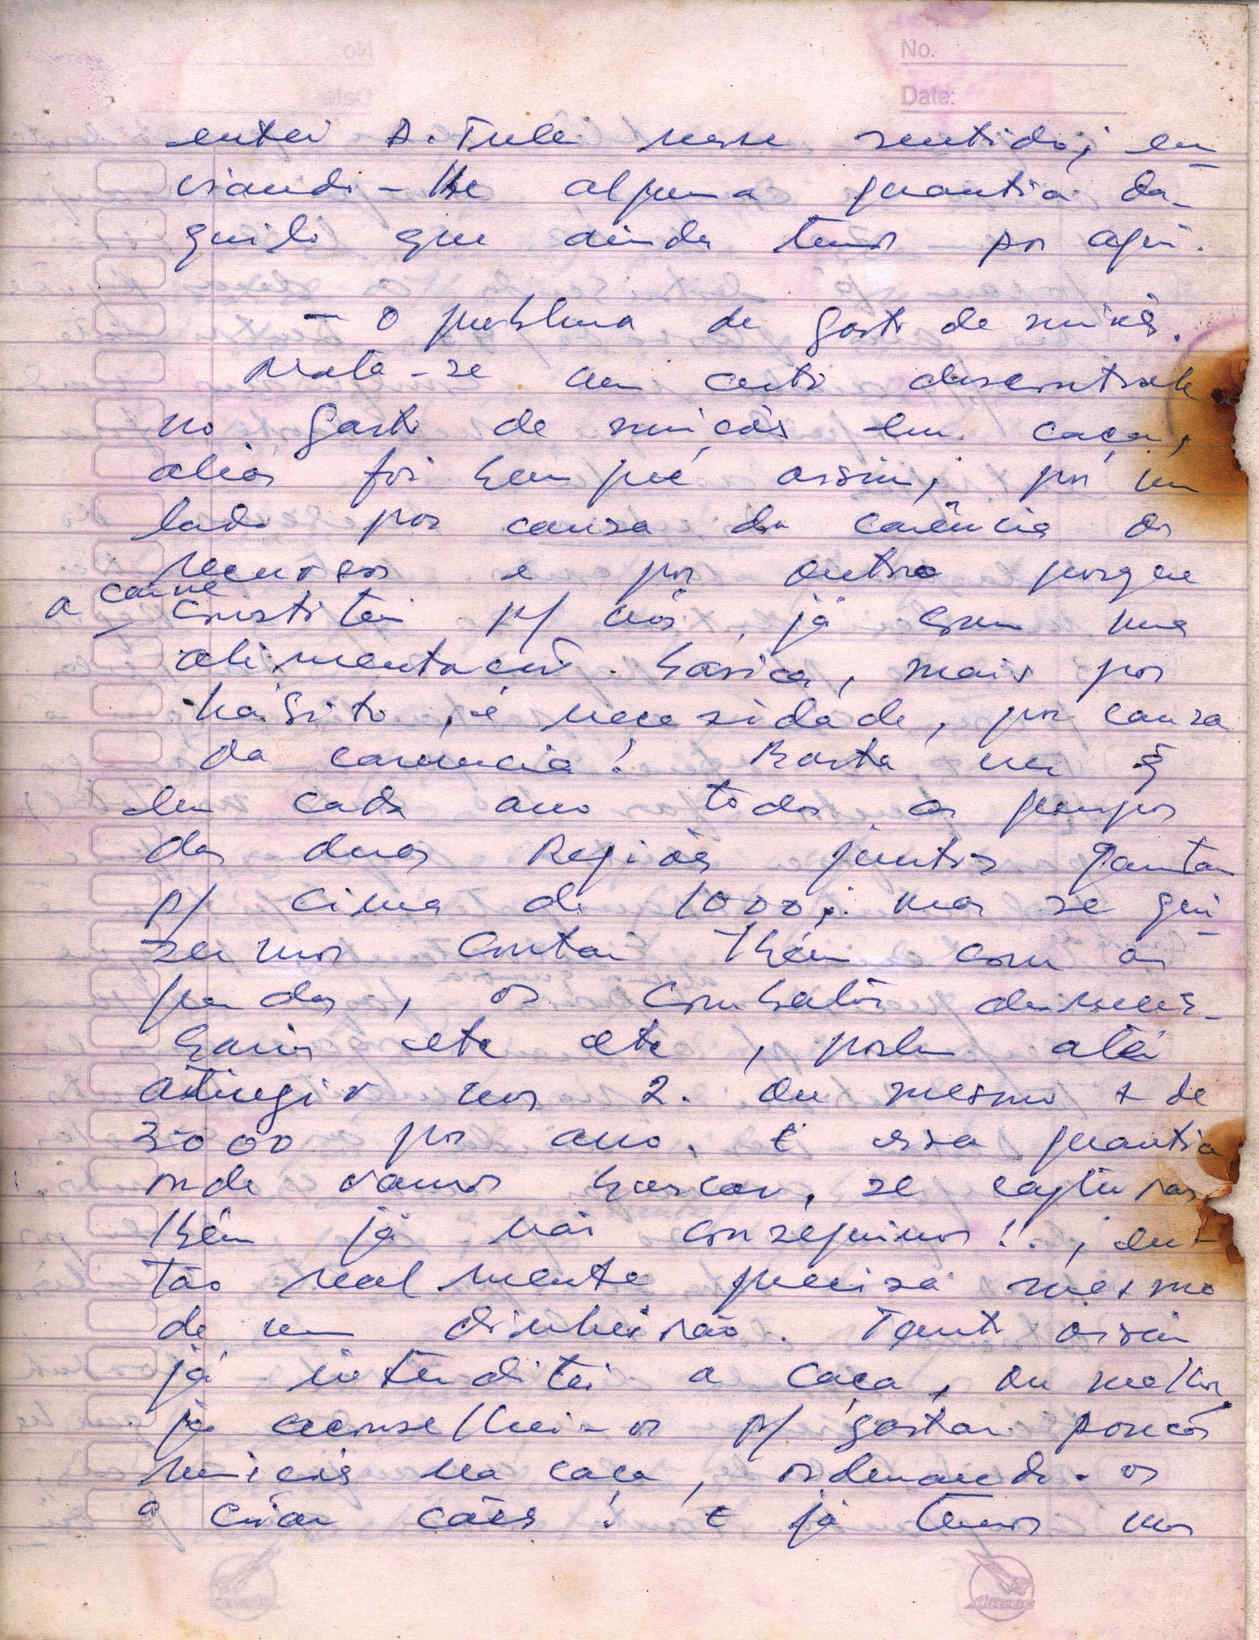 No.
Date:
entei A. Tuli nesse sentido; en-
viando-lhe alguma quantia da-
quilo que ainda temos por aqui.
- O problema de gasto de munições.
Nota-se um certo descontrole
no gasto de munições em caça,
aliás foi sempre assim; por um
lado por causa da carência de
recursos e por outro porque
a carne
constitui p/ nós já como uma
alimentação básica, mais por
hábito, e necessidade, por causa
da carência! Basta ver q
em cada ano todos os grupos
das duas Regiões juntos gastam
p/ cima de 1000; mas se qui-
sermos contar tbém com as
perdas, os combates desneces-
sários etc etc, podem até
atingir uns 2. ou mesmo + de
3000 por ano. E essa quantia
onde vamos buscar, se capturas
tbém já não conseguimos!.; en-
tão realmente precisa mesmo
de um dinheirão. Tanto assim
já interditei a caça, ou melhor,
já aconselhei-os p/ gastar poucas
munições na caça, ordenando-os
a criar cães! E já temos uns